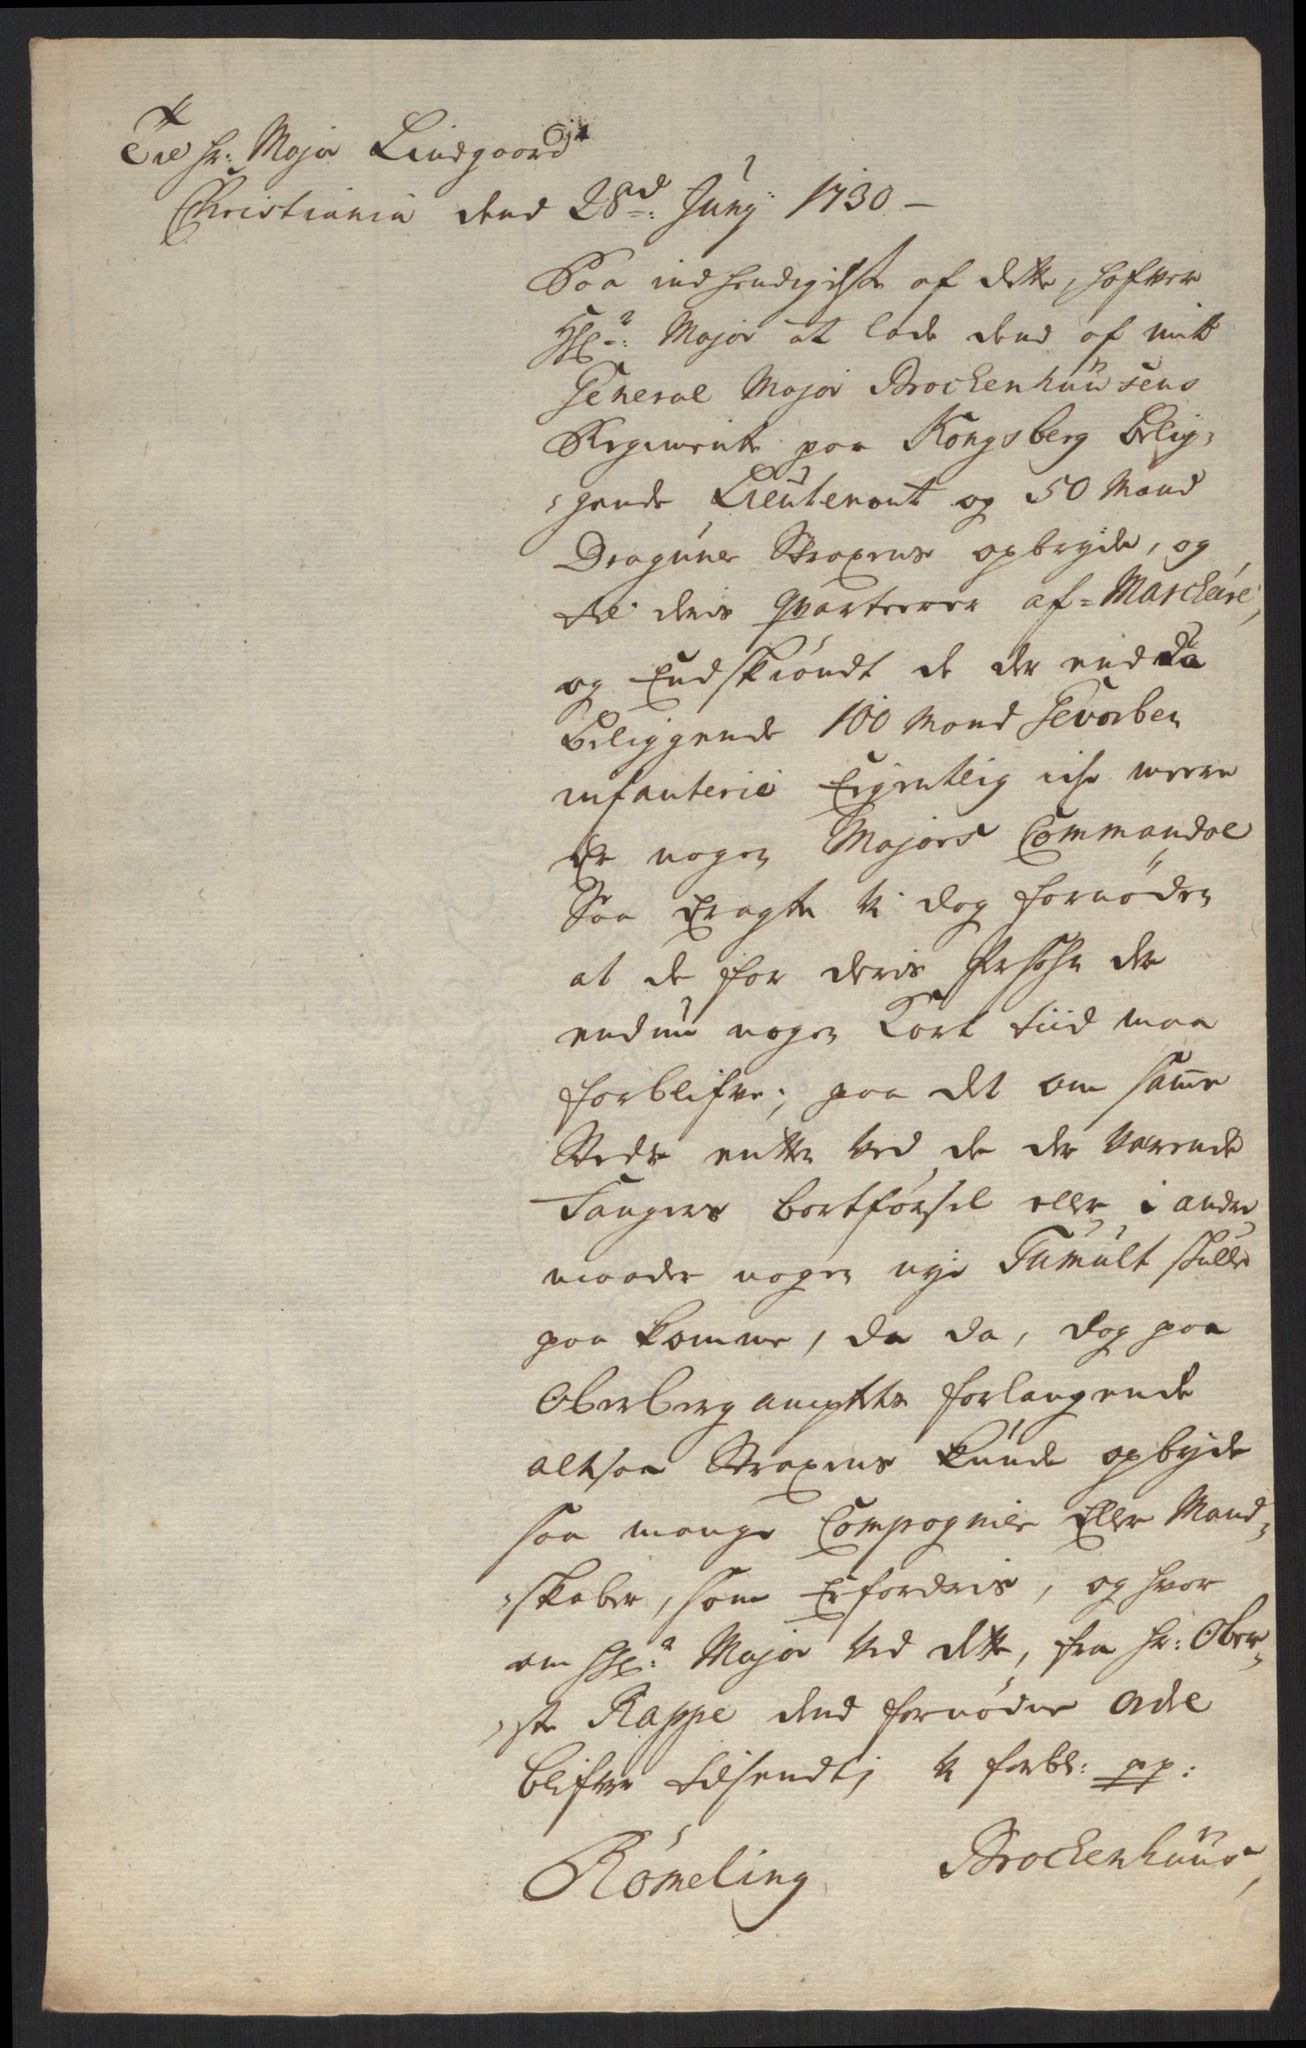 Til Hr: Major Lindgaard
Christiania dend 28d: Junÿ 1730 –
Paa indhendigelse af dette, hafver
Hr: Major at lade dend af mit
General Major Brockenhuusens
Regimente paa Kongsberg belig-
-gende Lieutenant og 50 Mand
Draguner Straxens opbryde, og
til deris qvarteerer af-Marchere,
og Endskiöndt de der endda
beliggende 100 Mand Gevorben
infanterie Eigentlig iche were
de nogen Majors Commando
Saa Eragte Vi dog fornöden
at de for deris Persohn der
endnu nogen Kort tiid maa
forblifve; paa det om samme
Steds enten ved de der værende
Fangers bortförsel eller i andre
maader nogen nye Tumult skulle
paa komme, De da, dog paa
Oberbergamptets forlangende
altsaa Straxens kunde opbyde
saa mange Compagnier Eller Mand-
-skaber, som Erfordris, og hvor
om Hr: Major ved dette, fra Hr: Ober-
-ste Rappe dend fornödne Ordre
blifver tilsendt; Vi forbl: pp:
Römeling Brockenhuus